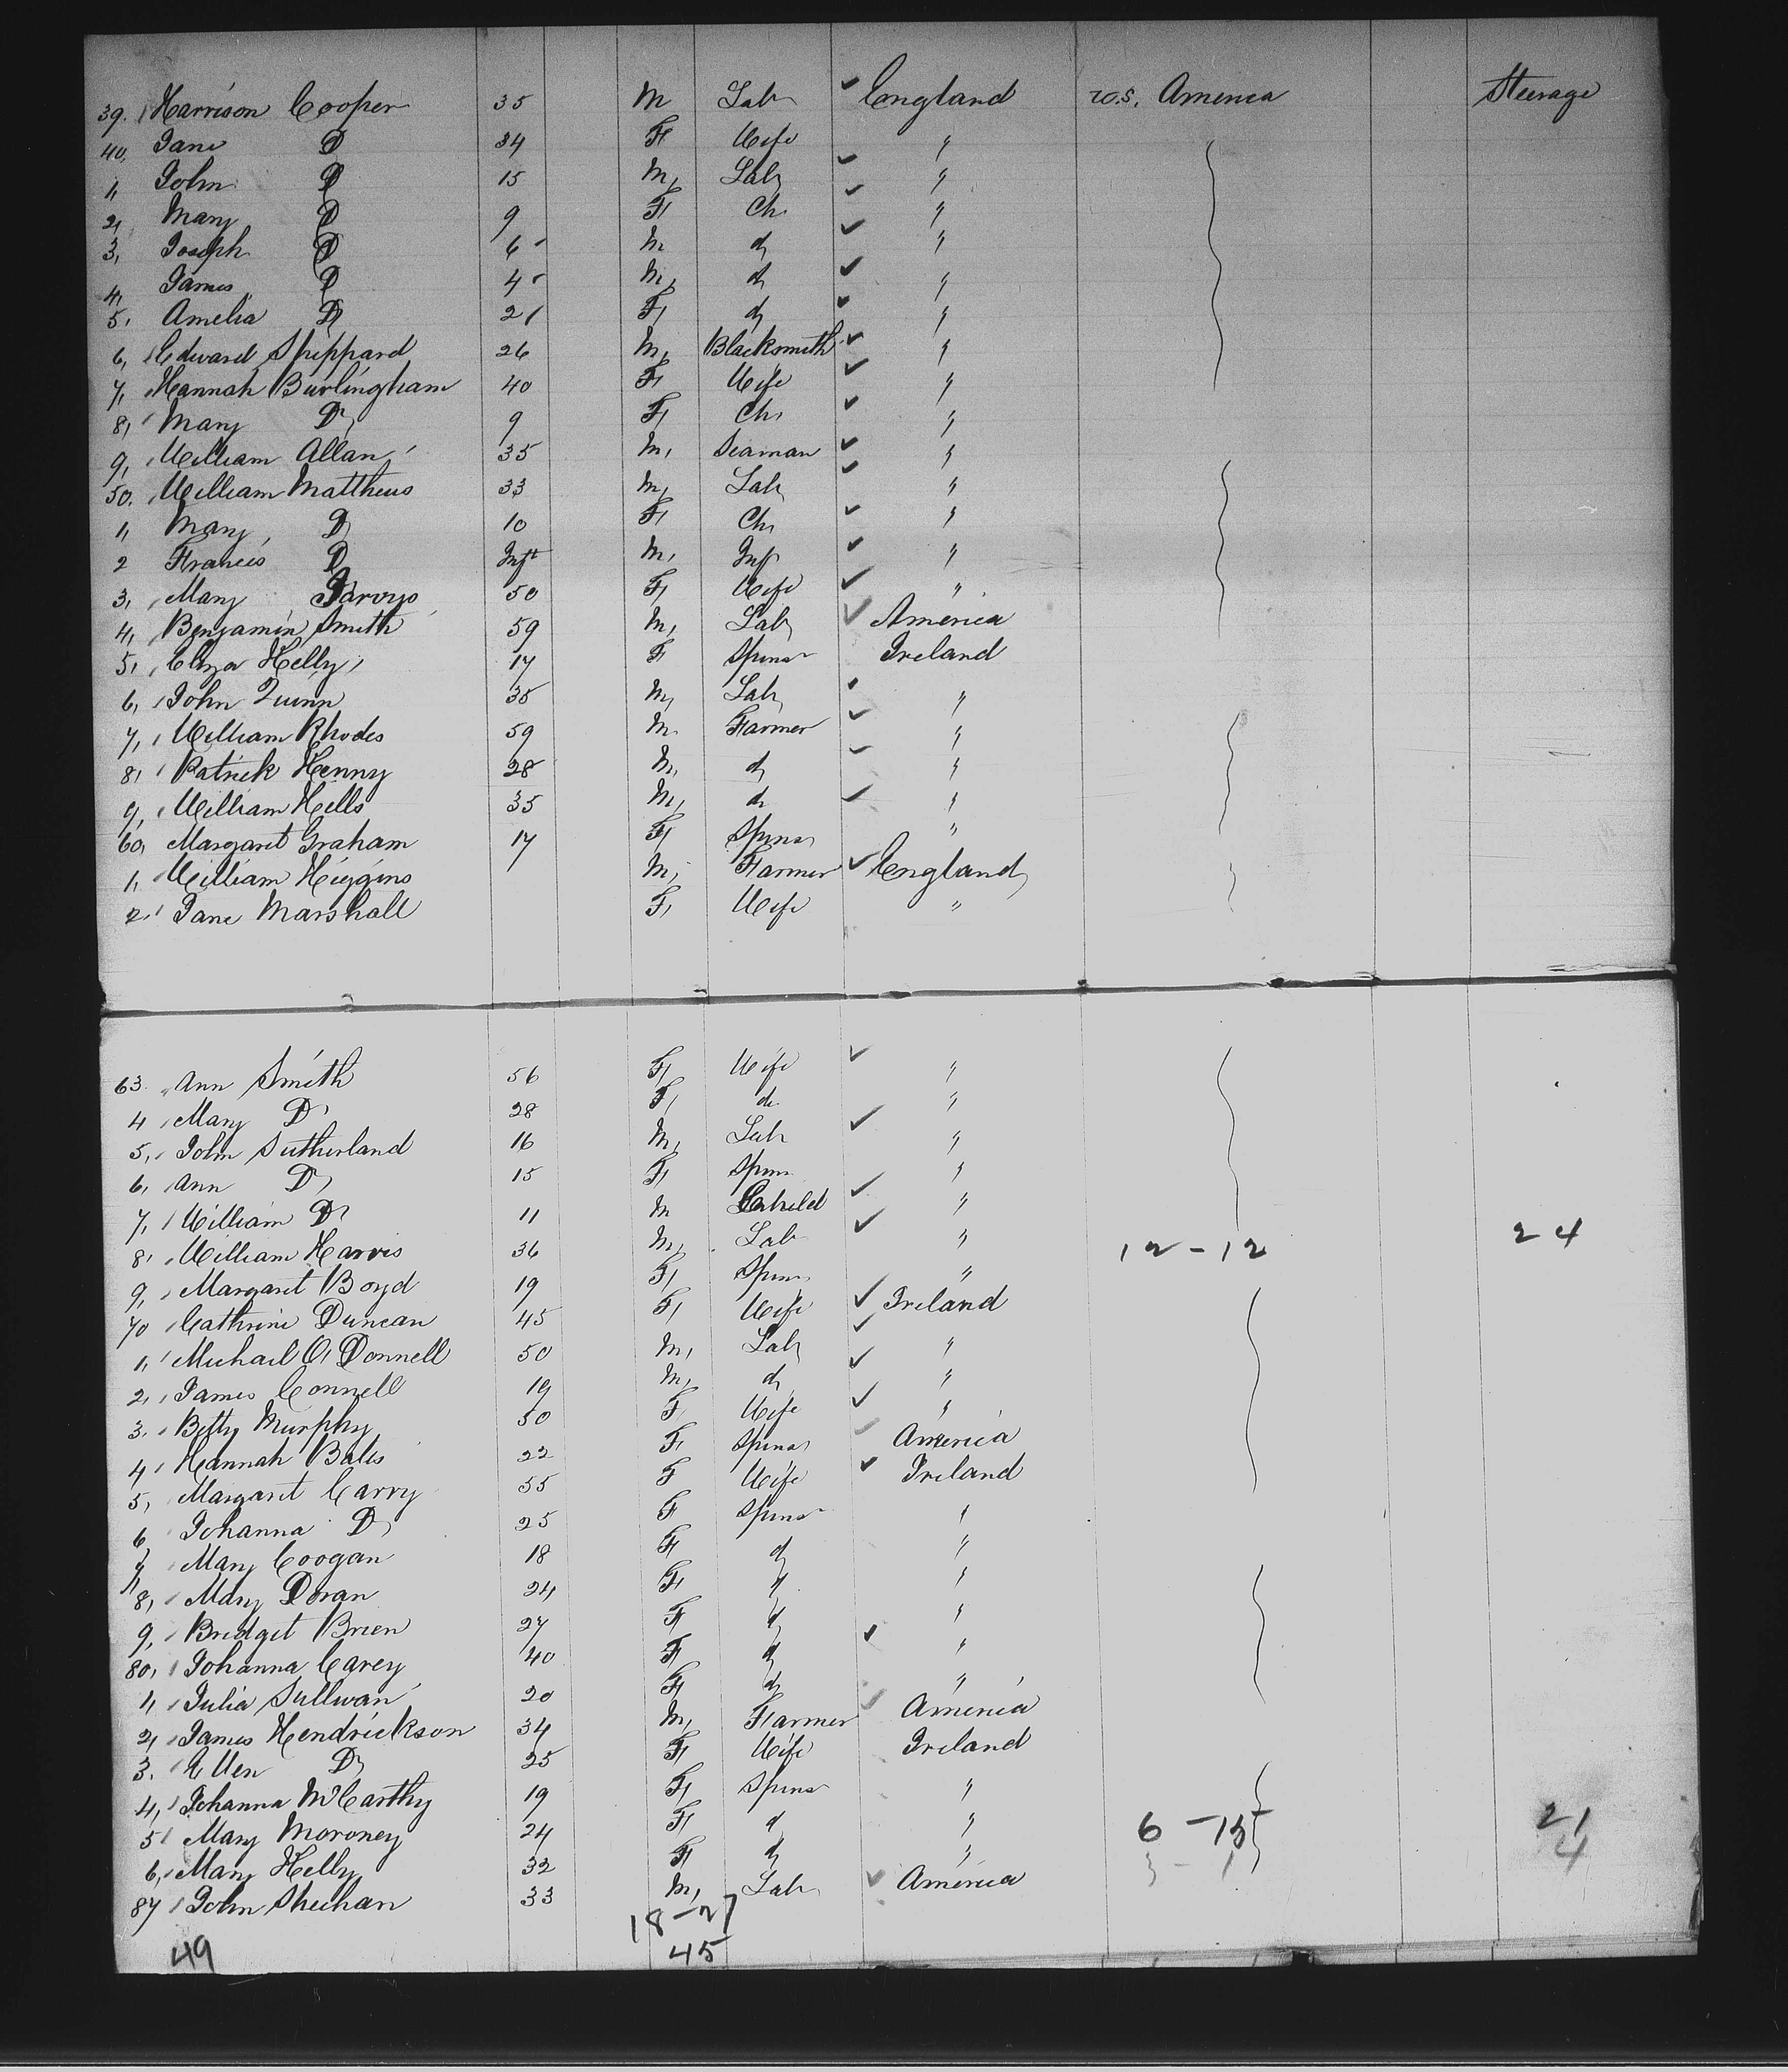 39. Harrison Cooper 35 M Lab England U.S. America Steerage
40, Jane D 34 F Wife "
1, John D 15 M, Lab, "
2, Mary D 9 F, Ch. "
3, Joseph D 6 M d, "
4, James D 4 M, d, "
5, Amelia D 2 F, d, "
6, Edward Sheppard 26 M, Blacksmith "
7, Hannah Burlingham 40 F, Wife "
8, Mary D, 9 F, Ch, "
9, William Allan 35 M, Seaman "
50. William Matthews 33 M, Lab, "
1, Mary D, 10 F, Ch, "
2 Francis D Inft M, Inf "
3, Mary 50 F, Wife "
4, Benjamin Smith 59 M, Lab, America
5, Eliza Kelly 17 F Spins Ireland
6, John Quinn 35 M, Lab, "
7, William Rhodes 59 M. Farmer "
8, Patrick Kenny 28 M, d, "
9, William Kells 35 M, d, "
60, Margaret Graham 17 F, Spins "
1, William Higgins M, Farmer England
2, Jane Marshall F, Wife "
63. Ann Smith 56 F, Wife "
4 Mary D 28 F, do "
5, John Sutherland 16 M, Lab "
6, Ann D, 15 F, Spins "
7, William D, 11 M Child "
8, William Harris 36 M, Lab "
12-12 24
9, Margaret Boyd 19 F, Spins "
70 Cathrine Duncan 45 F, Wife Ireland
1, Michail O'Donnell 50 M, Lab, "
2, James Connell 19 M, d, "
3. Betty Murphy 50 F Wife "
4 Hannah Bates 22 F, Spins America
5, Margaret Carry 55 F Wife Ireland
6, Johanna D, 25 F Spins "
7, Mary Coogan 18 F, d, "
8, Mary Doran 24 F, d, "
9, Bridget Brien 27 F, d, "
80, Johanna Carey 40 F, d, "
1, Julia Sullivan 20 F, d, "
2, James Hendrickson 34 M, Farmer America
3. Ellen D, 25 F, Wife Ireland
4, Johanna McCarthy 19 F, Spins "
5 Mary Moroney 24 F, d, "
6 - 15 21
6, Mary Kelly 32 F, d, "
3 - 1 4
87 John Sheehan 33 M, Lab America
18-27
49 45